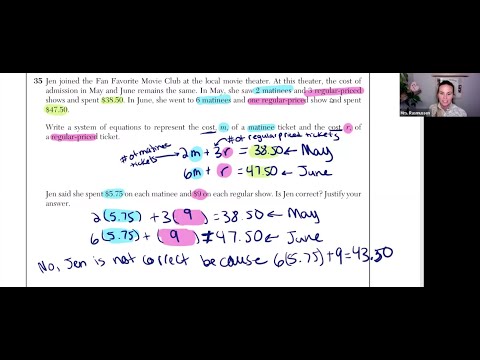 35 Jen joined the Fan Favorite Movie Club at the local movie theater. At this theater, the cost of
admission in May and June remains the same. In May, she saw 2 matinees and 3 regular-priced
shows and spent $38.50. In June, she went to 6 matinees and one regular-priced show and spent
$47.50.
Write a system of equations to represent the cost, m, of a matinee ticket and the cost, r, of
a regular-priced ticket.
# of regular priced tickets
# of matinee
tickets
2m + 3r = 38.50 ← May
6m + r = 47.50 ← June
Jen said she spent $5.75 on each matinee and $9 on each regular show. Is Jen correct? Justify your
answer.
2(5.75) + 3(9) = 38.50 ← May
6(5.75) + (9) ≠ 47.50 ← June
No, Jen is not correct because 6(5.75) + 9 = 43.50
Mrs. Rasmussen